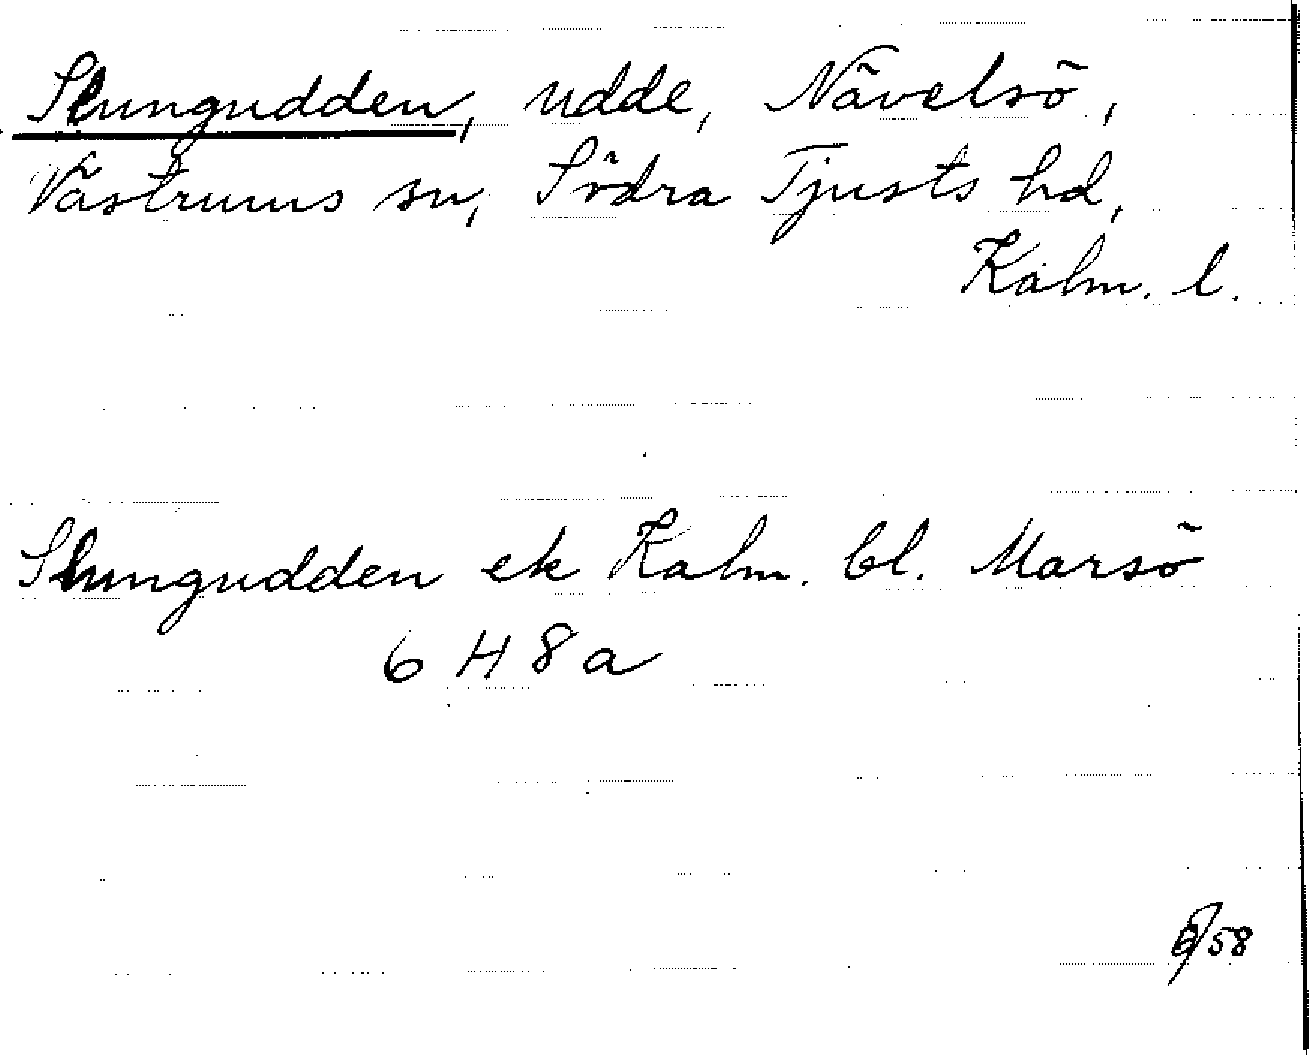 Slungudden, udde, Nävelsö,
Västrums sn, Södra Tjusts hd,
Kalm. l.
Slungudden ek Kalm. bl. Marsö
6 H 8 a
6/58